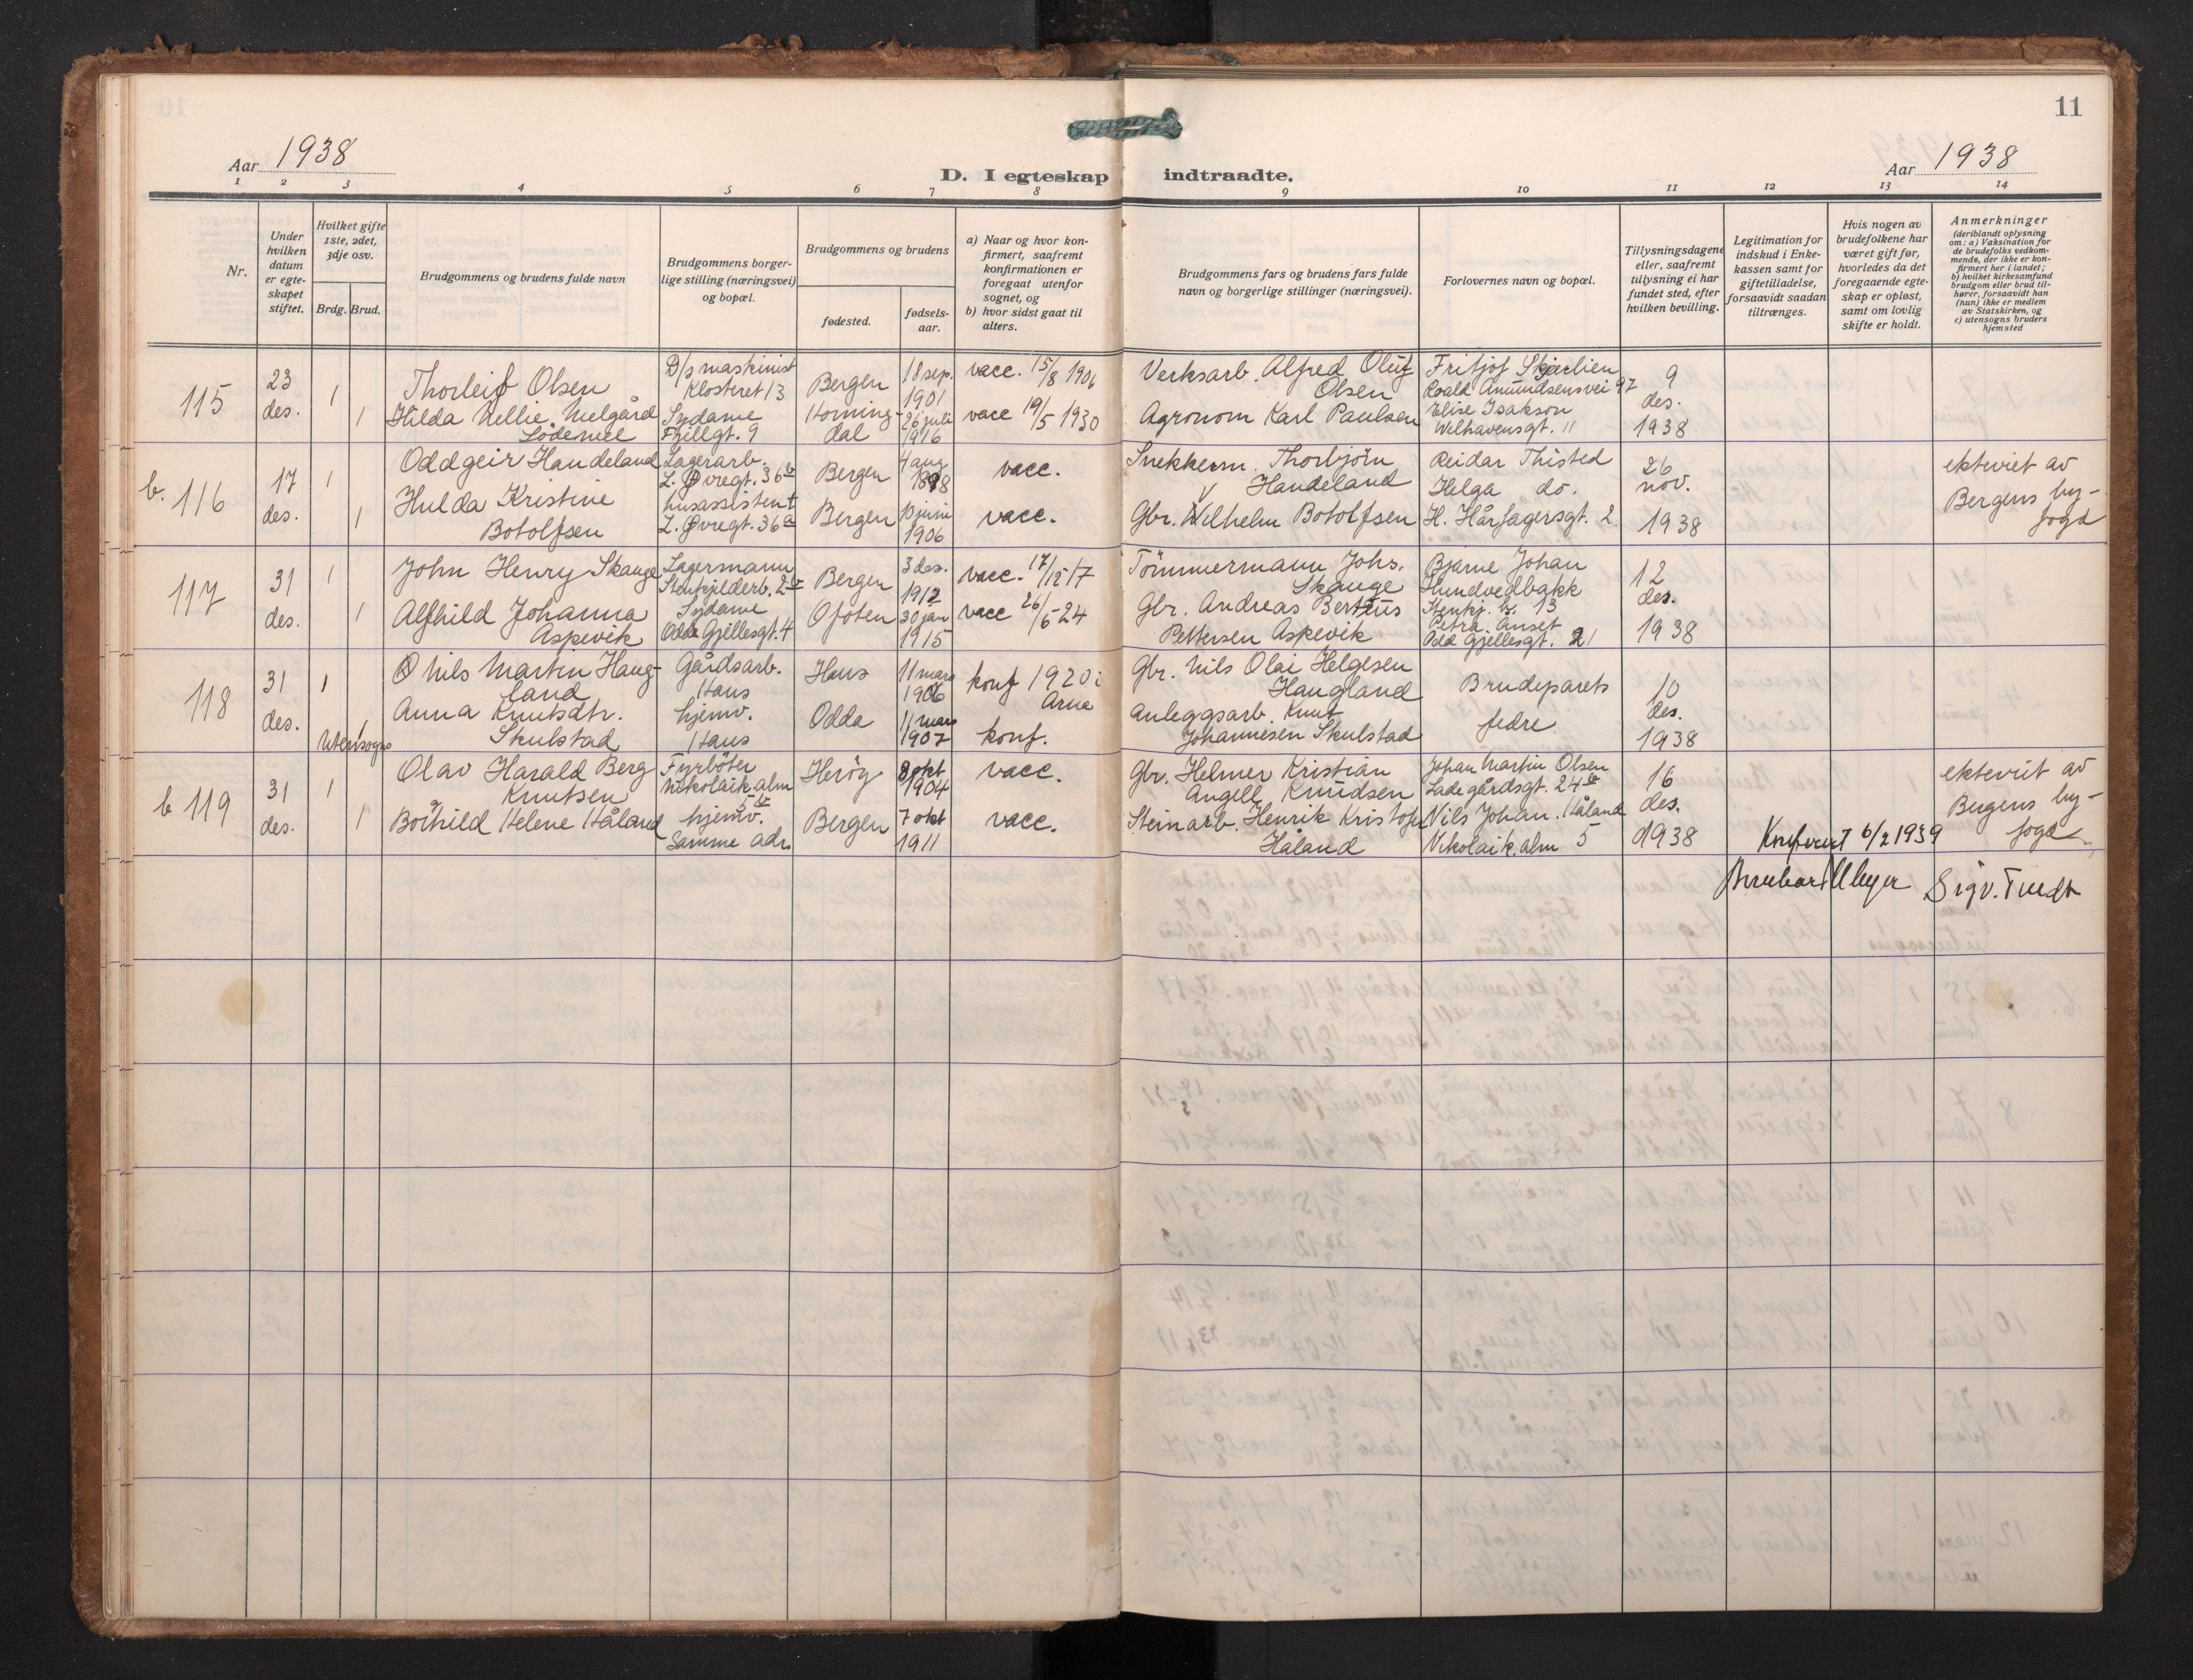 11
Aar 1938
D. I egteskap indtraadte.
Aar 1938
1 2 3 4 5 6 7 8 9 10 11 12 13 14
Nr.
Under hvilken datum er egteskapet stiftet.
Hvilket gifte 1ste, 2det, 3dje osv.
Brdg. Brud.
Brudgommens og brudens fulde navn
Brudgommens borgerlige stilling (næringsvei) og bopæl.
Brudgommens og brudens
fødested.
fødselsaar.
a) Naar og hvor konfirmert, saafremt konfirmationen er foregaat utenfor sognet, og
b) hvor sidst gaat til alters.
Brudgommens fars og brudens fars fulde navn og borgerlige stillinger (næringsvei).
Forlovernes navn og bopæl.
Tillysningsdagene eller, saafremt tillysning ei har fundet sted, efter hvilken bevilling.
Legitimation for indskud i Enkekassen samt for giftetilladelse, forsaavidt saadan tiltrænges.
Hvis nogen av brudefolkene har været gift før, hvorledes da det foregaaende egteskap er opløst, samt om lovlig skifte er holdt.
Anmerkninger (deriblandt oplysning om: a) Vaksination for de brudefolks vedkommende, der ikke er konfirmert her i landet; b) hvilket kirkesamfund brudgom eller brud tilhører, forsaavidt han (hun) ikke er medlem av Statskirken, og c) utensogns bruders hjemsted
115
23 des.
1
Thorleif Olsen
D/s maskinist Klosteret 13
Bergen
18 sep. 1901
vacc. 15/8 1906
Verksarb. Alfred Oluf Olsen
Fritjof Skjerlien Roald Amundsensvei 97
9 des. 1938
1
Hilda Nellie Melgård Lödemel
Sydame Fjillgt. 9
Horningdal
26 juli 1916
vacc 19/5 1930
Agronom Karl Paulsen
Elise Isakson Welhavensgt. 11
b. 116
17 des.
1
Oddgeir Handeland
Lagerarb. L. Øvregt. 36b
Bergen
4 aug 1898
vacc.
Snekkerm. Thorbjørn Handeland
Reidar Thisted
26 nov. 1938
ekteviet av Bergens byfogd
1
Hulda Kristine Botolfsen
husassistent L. Øvregt. 36a
Bergen
10 juni 1906
vacc.
Gbr. Wilhelm Botolfsen
Helga do. H. Hårfagersgt. 2.
117
31 des.
1
John Henry Skauge
Lagermann Stenkjelderb. 2b
Bergen
3 des. 1912
vacc. 17/12 17
Tömmermann Johs. Skauge
Bjarne Johan Hundvedbakk Stenkj. b. 13
12 des. 1938
1
Alfhild Johanna Askevik
Sydame Odd Gjellesgt. 4
Ofoten
30 jan 1915
vacc 26/5 24
Gbr. Andreas Bertius Pettersen Askevik
Petra Anset Odd Gjellesgt. 21
118
31 des.
1
Nils Martin Haugland
Gårdsarb. Haus
Haus
11 mars 1906
konf 1920 i Arna
Gbr. Nils Olai Helgesen Haugland
Brudeparets fedre
10 des. 1938
1
utensogns
Anna Knutsdtr. Skulstad
hjemv. Haus
Odda
11 mars 1907
konf.
Anleggsarb. Knut Johannesen Skulstad
b 119
31 des.
1
Olav Harald Berg Knutsen
Fyrböter Nikolaik.alm 5b
Heröy
8 okt 1904
vacc.
Gbr. Helmer Kristian Angell Knudsen
Johan Martin Olsen Ladegårdsgt. 24b
16 des. 1938
ekteviet av Bergens byfogd
1
Bothild Helene Håland
hjemv. Samme adr.
Bergen
7 okt 1911
vacc.
Steinarb. Henrik Kristofer Håland
Nils Johan Håland Nikolaik. alm 5
Konferert 6/2 1939
Bernhard Meyer
Sigv. Tvedt